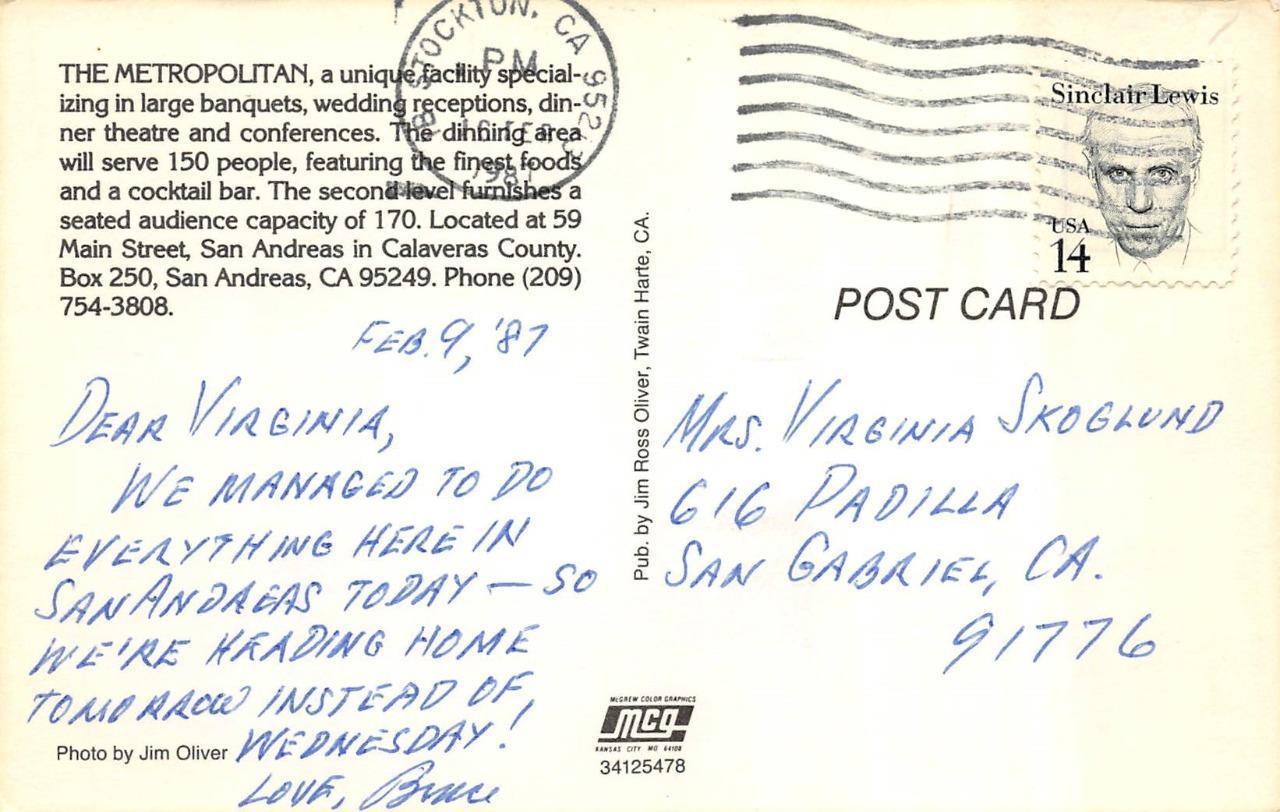 THE METROPOLITAN, a unique facility special-
izing in large banquets, wedding receptions, din-
ner theatre and conferences. The dinning area
will serve 150 people, featuring the finest foods
and a cocktail bar. The second level furnishes a
seated audience capacity of 170. Located at 59
Main Street, San Andreas in Calaveras County.
Box 250, San Andreas, CA 95249. Phone (209)
754-3808.
FEB. 9, '87
DEAR VIRGINIA,
WE MANAGED TO DO
EVERYTHING HERE IN
SAN ANDREAS TODAY — SO
WE'RE HEADING HOME
TOMORROW INSTEAD OF,
WEDNESDAY!
LOVE, Bruce
Photo by Jim Oliver
Pub. by Jim Ross Oliver, Twain Harte, CA.
McGREW COLOR GRAPHICS
mcg
KANSAS CITY MO 64108
34125478
STOCKTON, CA 952
PM
FEB
1987
Sinclair Lewis
USA
14
POST CARD
MRS. VIRGINIA SKOGLUND
616 PADILLA
SAN GABRIEL, CA.
91776